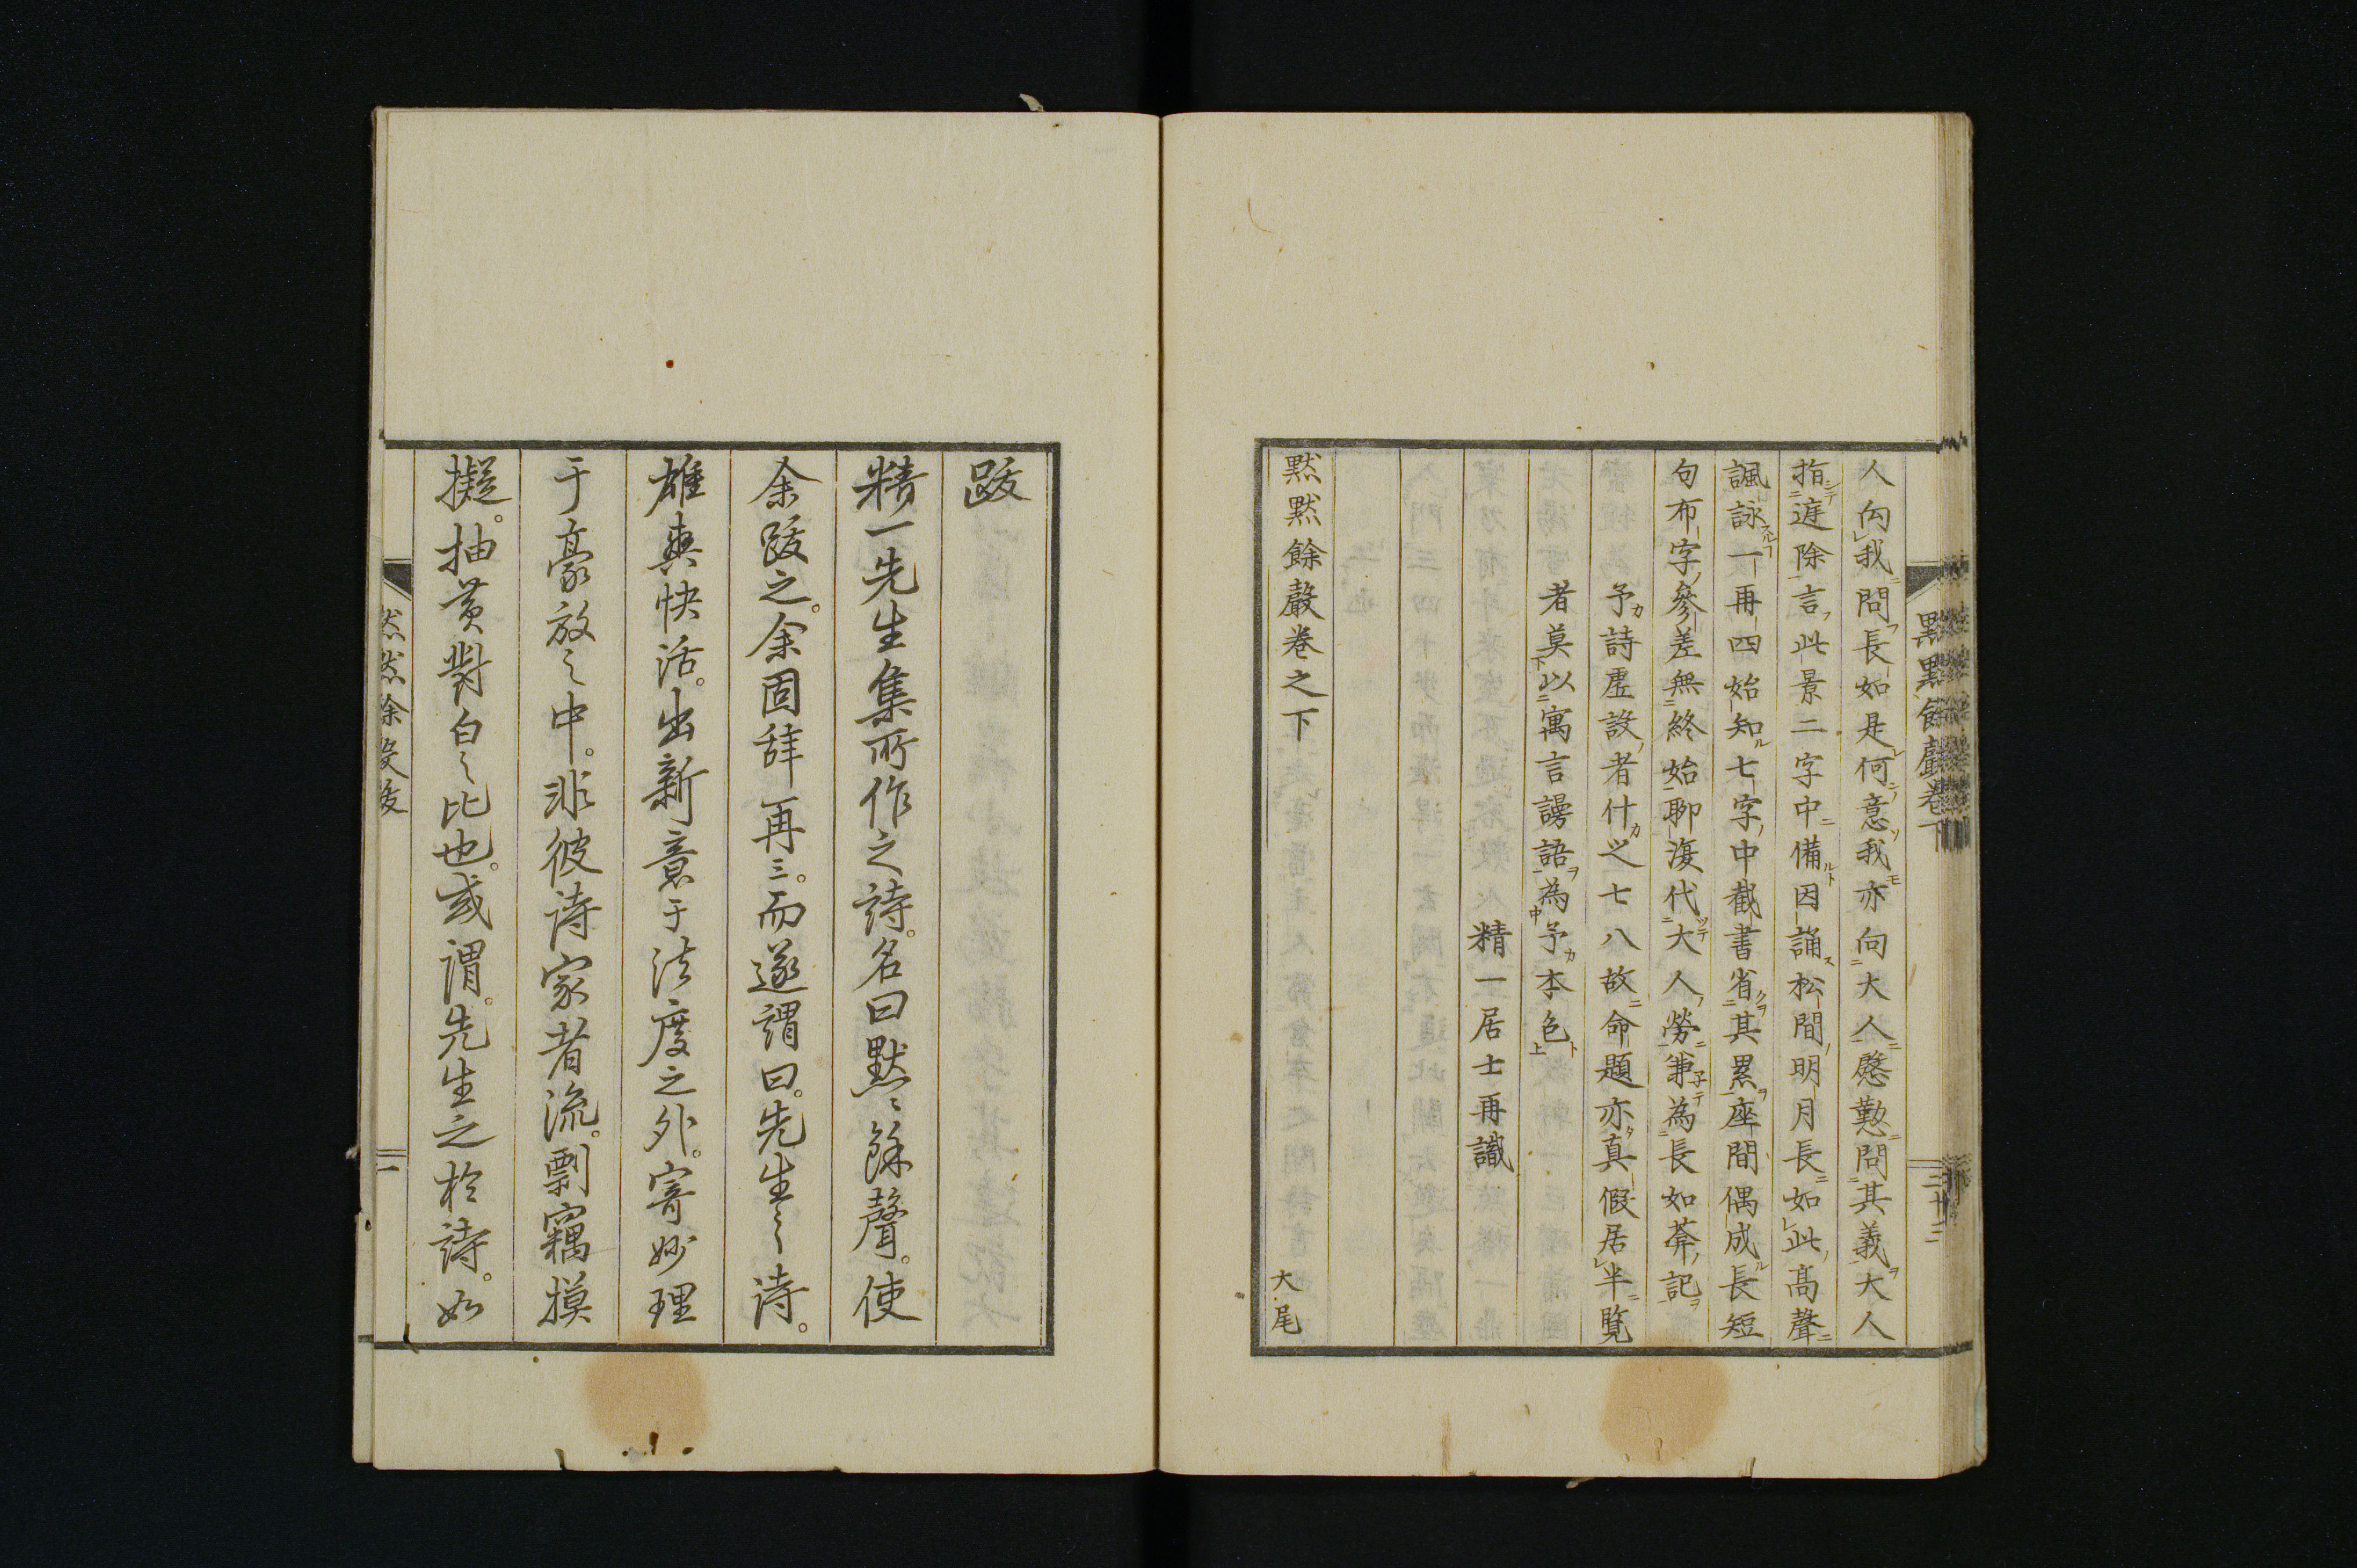 人向我問長如是何意我亦向大人慇懃問其義大人
指遮除言此景二字中備因誦松間明月長如此高聲
諷詠一再四始知七字中截書省其累座間偶成長短
句布字參差無終始聊復代大人勞筆為長如菴記
予詩虛設者什之七八故命題亦真假居半覽
者莫以寓言謾語為予本色
精一居士再識
黙黙餘聲卷之下
大尾
黙黙餘聲卷下
三十三
跋
精一先生集所作之詩。名曰黙〻餘聲。使
余跋之。余固辞再三。而遂謂曰。先生之詩。
雄爽快活。出新意于法度之外。寄妙理
于豪放之中。非彼诗家者流。剽竊摸
擬。抽黄對白之比也。或謂。先生之於詩。如
一